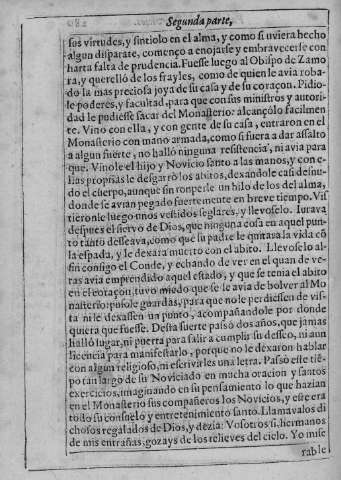 Segunda parte,
sus virtudes, y sintiolo en el alma, y como si uviera hecho
algun disparate, començo a enojarse y embravecerse con
harta falta de prudencia. Fuesse luego al Obispo de Zamo
ra, y querellò de los frayles, como de quien le avia roba-
do la mas preciosa joya de su casa y de su coraçon. Pidio-
le poderes, y facultad, para que con sus ministros y autori-
dad le pudiesse sacar del Monasterio: alcançólo facilmen
te. Vino con ella, y con gente de su casa, entraron en el
Monasterio con mano armada, como si fuera a dar assalto
a algun fuerte, no halló ninguna resistencia, ni avia para
que. Vinole el hijo y Novicio santo a las manos, y con e-
llas proprias le desgarró los abitos, dexandole casi desnu-
do el cuerpo, aunque sin romperle un hilo de los del alma,
donde se avian pegado fuertemente en breve tiempo. Vis
tieronle luego unos vestidos seglares, y llevoselo. Iurava
despues el siervo de Dios, que ninguna cosa en aquel pun-
to tanto desseava, como que su padre le quitara la vida cō
la espada, y le dexàra muerto con el abito. Llevoselo al-
fin consigo el Conde, y echando de ver en el quan de ve-
ras avia emprendido aquel estado, y que se tenia el abito
en el coraçon, tuvo miedo que se le avia de bolver al Mo
nasterio: pusole guardas, para que no le perdiessen de vis-
ta ni le dexassen un punto, acompañandole por donde
quiera que fuesse. Desta suerte passó dos años, que jamas
halló lugar, ni puerta para salir a cumplir su desseo, ni aun
licencia para manifestarlo, porque no le dexaron hablar
con algun religioso, ni escrivirles una letra. Passò este tiē-
po tan largo de su Noviciado en mucha oracion y santos
exercicios, imaginando en su pensamiento lo que hazian
en el Monasterio sus compañeros los Novicios, y este era
todo su consuelo y entretenimiento santo. Llamavalos di
chosos regalados de Dios, y dezia: Vosotros si, hermanos
de mis entrañas, gozays de los relieves del cielo. Yo mise
rable